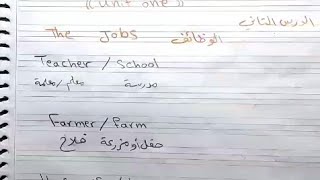 ((Unit one))
الدرس الثاني
The Jobs الوظائف
Teacher / School
معلم/معلمة مدرسة
Farmer / Parm
فلاح حقل أو مزرعة